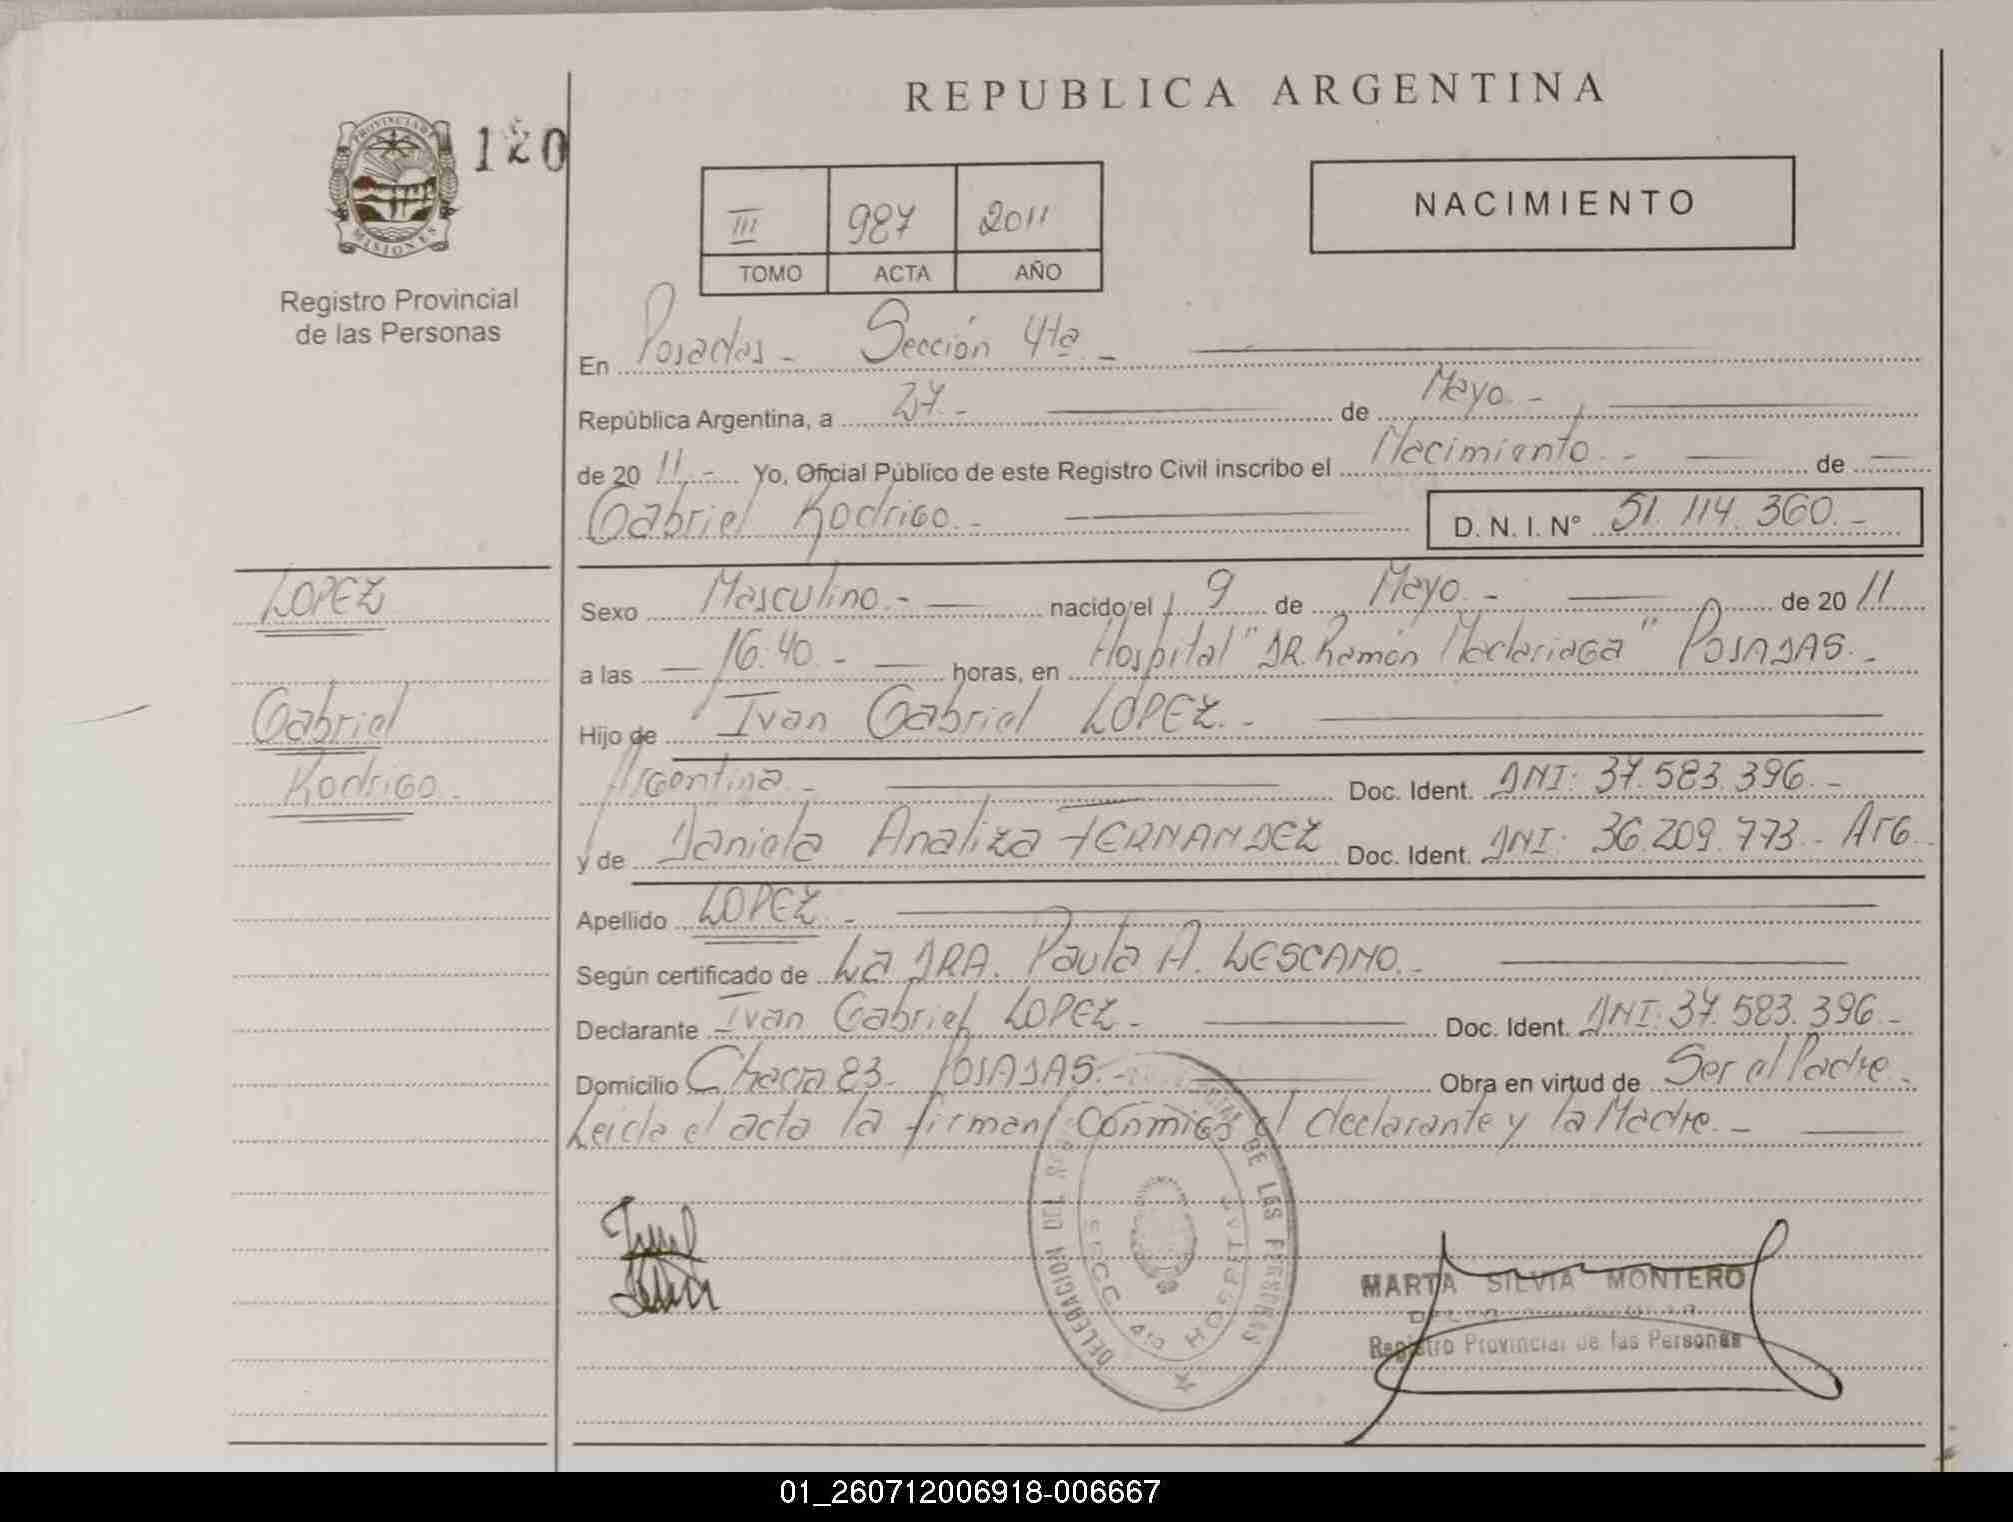 REPUBLICA ARGENTINA
PROVINCIA DE
MISIONES
120
Registro Provincial
de las Personas
III 987 2011
TOMO ACTA AÑO
NACIMIENTO
En Posadas - Sección 4ta -
República Argentina, a 27 - de Mayo -
de 20 11 - Yo, Oficial Público de este Registro Civil inscribo el Nacimiento - de
Gabriel Rodrigo - D. N. I. N° 51.114.360.-
LOPEZ
Gabriel
Rodrigo
Sexo Masculino.- nacido el 9 de Mayo - de 20 11
a las 16:40 - horas, en Hospital "DR. Ramón Madariaga" POSADAS.-
Hijo de Ivan Gabriel LOPEZ.-
Argentina.- Doc. Ident. DNI: 37.583.396.-
y de Daniela Analiza FERNANDEZ Doc. Ident. DNI: 36.209.773.- Arg
Apellido LOPEZ -
Según certificado de La DRA. Paula A. LESCANO.-
Declarante Ivan Gabriel LOPEZ - Doc. Ident. DNI: 37.583.396 -
Domicilio Chacra 83 - POSADAS.- Obra en virtud de Ser el Padre.
Leida el acta la firman conmigo el declarante y la Madre.-
DELEGACION DEL DE LAS PERSONAS
SECC 4ta HOSPITAL
MARTA SILVIA MONTERO
Registro Provincial de las Personas
01_260712006918-006667